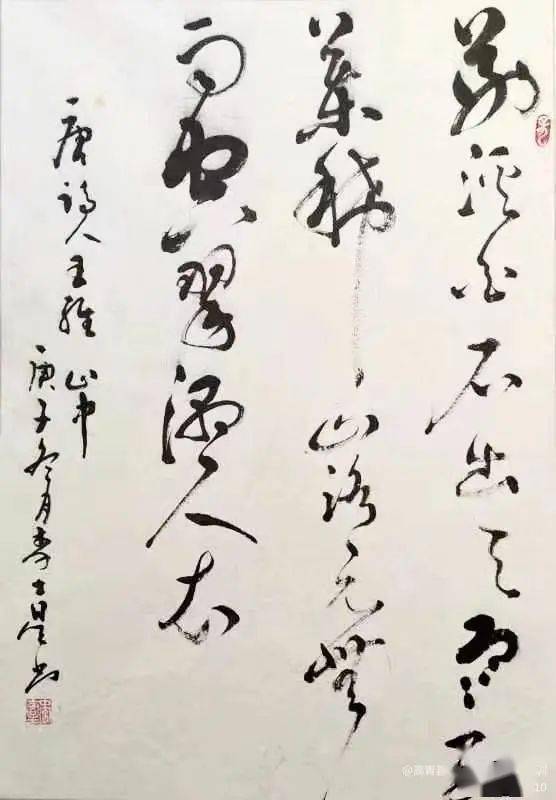 荆溪白石出天寒红
葉稀山路元無
雨空翠湿人衣
唐詩人王維山中
庚子冬月士星书